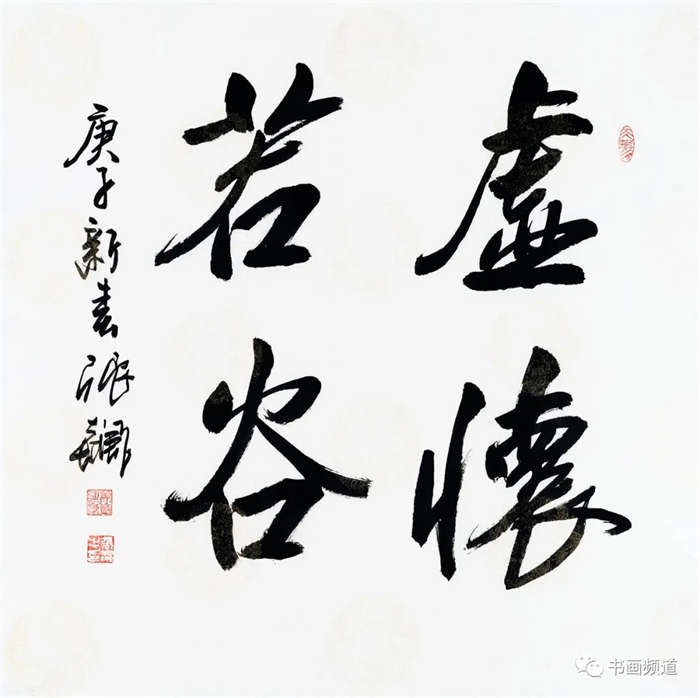 虚懷
若谷
庚子新春张
书画频道